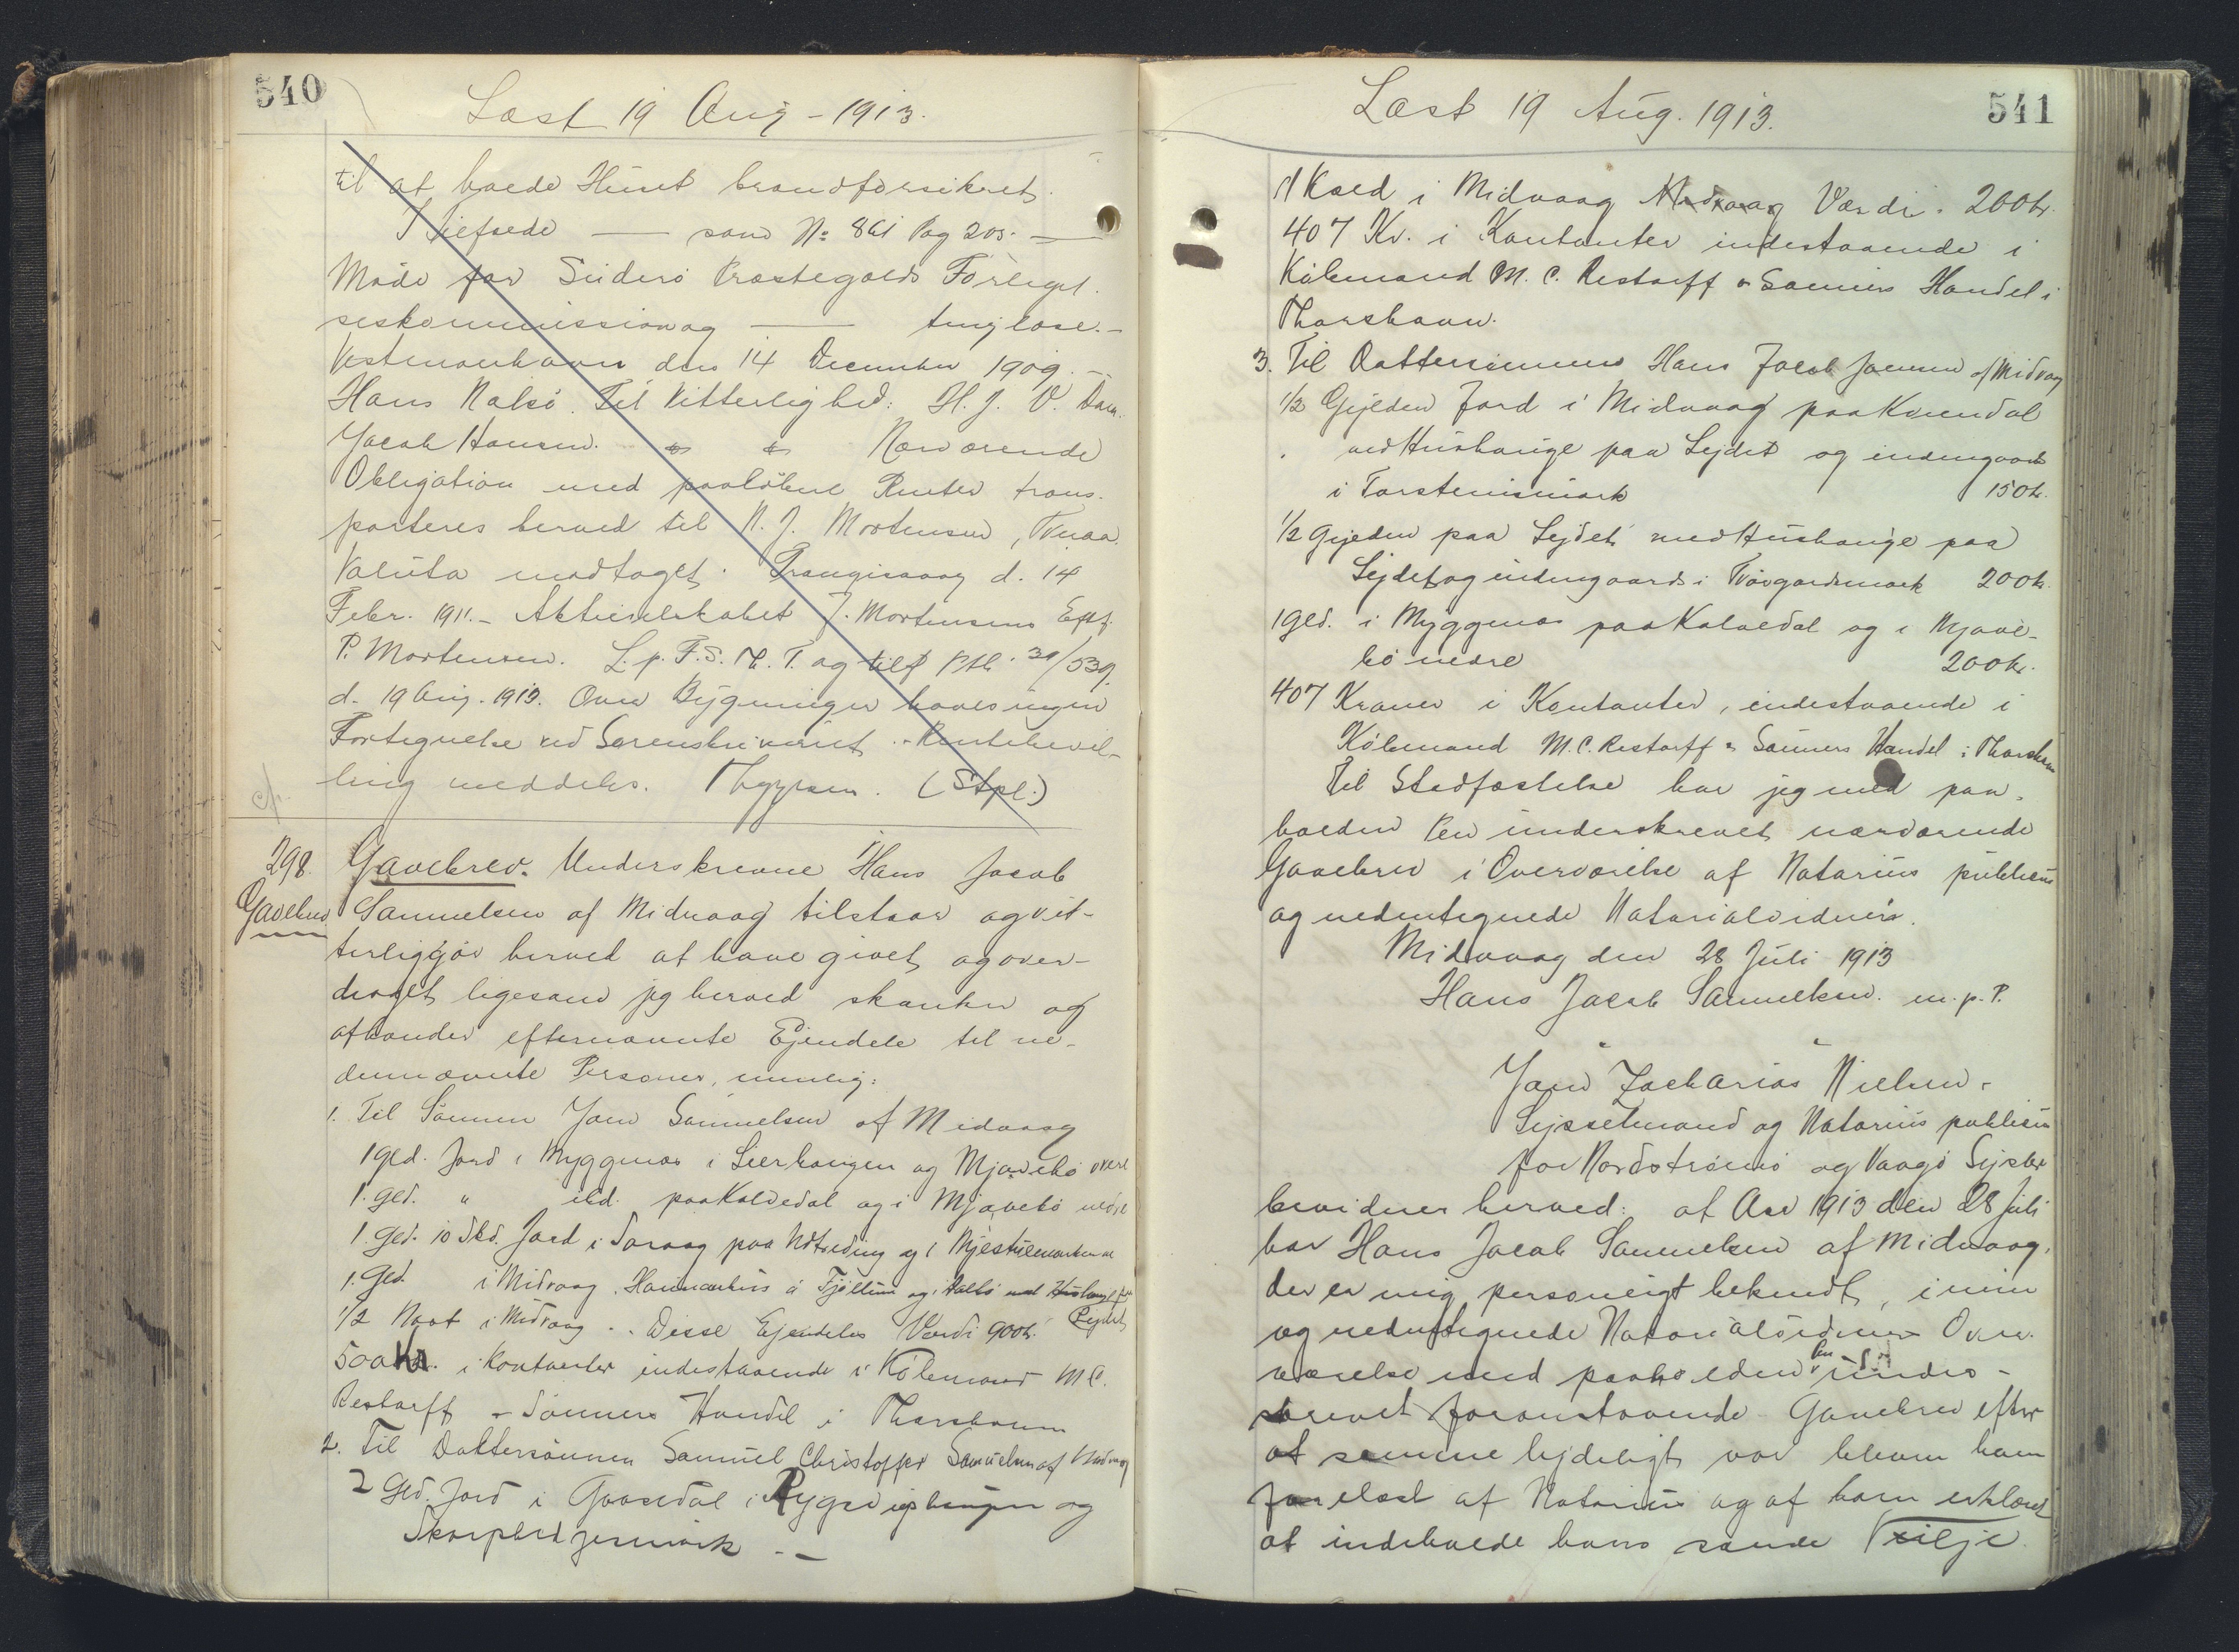 540
Læst 19 Aug - 1913.
til at holde Huset brandforsikret.
I Tilfælde — som No 861 Pag 205. —
Møde for Suderø Præstegjælds Forligel-
seskommission og — tinglæse. -
Vestmanhavn den 14 December 1909. -
Hans Nalsø. Til Vitterlighed: H. J. V. Dam.
Jacob Hansen. Nærværende
Obligation med paaløbne Renter trans-
porteres herved til N. J. Mortensen, Tveraa.
Valuta modtaget. Trangisvaag d. 14
Febr. 1911. - Aktieselskabet J. Mortensens Eftf.
P. Mortensen. L. p. F. S. M. T. og tilf Ptb. 30/539.
d. 19 Aug. 1913. Over Bygninger haves ingen
Fortegnelse ved Sorenskriveriet. - Rentebevil-
ling meddeles. Thygesen. (Stpl.)
298. Gavebrev. Underskrevne Hans Jacob
Gavebrev Samuelsen af Midvaag tilstaar og vit-
terliggjør herved at have givet og over-
draget ligesom jeg herved skænker og
afhænder efternævnte Ejendele til ne-
dennævnte Personer, nemlig:
1. Til Sønnen Joen Samuelsen af Midvaag
1 Gld. Jord i Myggenæs i Lierhaugen og Mjavebø øvre
1. Gld. " ibd. paa Kalvedal og i Mjavebø nedre
1. Gld. 10 Skd. Jord i Sorvaag paa og i
1. Gld. i Midvaag. Hannarhus á Fjöllum og i Halbø med Hushauge paa
1/2 Naot i Midvaag. . Disse Ejendeles Værdi 900 kr. Lejdet
500 Kr. i Kontanter indestaaende i Købmand M C.
Restorff & Sønners Handel i Thorshavn
2. Til Dattersønnen Samuel Christoffer Samuelsen af Midvaag
2 Gld. Jord i Gaasedal i og
541
Læst 19 Aug. 1913.
i Midvaag Værdi. 200 kr.
407 Kr. i Kontanter indestaaende i
Købmand M. C. Restorff & Sønners Handel i
Thorshavn.
3. Til Dattersønnen Hans Jacob Joensen af Midvaag
1/2 Gylden Jord i Midvaag paa Kvendal
med Hushauge paa Lejdet og indengaards
i Torsteinsmørk 150 kr.
1/2 Gylden paa Lejdet med Hushauge paa
Lejdet og indengaards i 200 kr.
1 Gld. i Myggenæs paa Kalvedal og i Mjave-
bø nedre 200 kr.
407 Kroner i Kontanter, indestaaende i
Købmand M. C. Restorff & Sønners Handel i Thorshavn
Til Stadfæstelse har jeg med paa-
holden Pen underskrevet nærværende
Gavebrev i Overværelse af Notarius publicus
og nedentegnede Notarialvidner.
Midvaag den 28 Juli 1913
Hans Jacob Samuelsen. m. p. P.
Joen Zacharias Nielsen.
Sysselmand og Notarius publicus
for Nordstrømø og Vaagø Sysler
bevidner herved: at Aar 1913 den 28 Juli
har Hans Jacob Samuelsen af Midvaag,
der er mig personligt bekendt, i min
og nedentegnede Notarialvidners Over-
værelse med paaholden Pen under-
skrevet foranstaaende Gavebrev efter
at samme lydeligt var bleven ham
forelæst af Notarius og af ham erklæret
at indeholde hans sande Vilje.